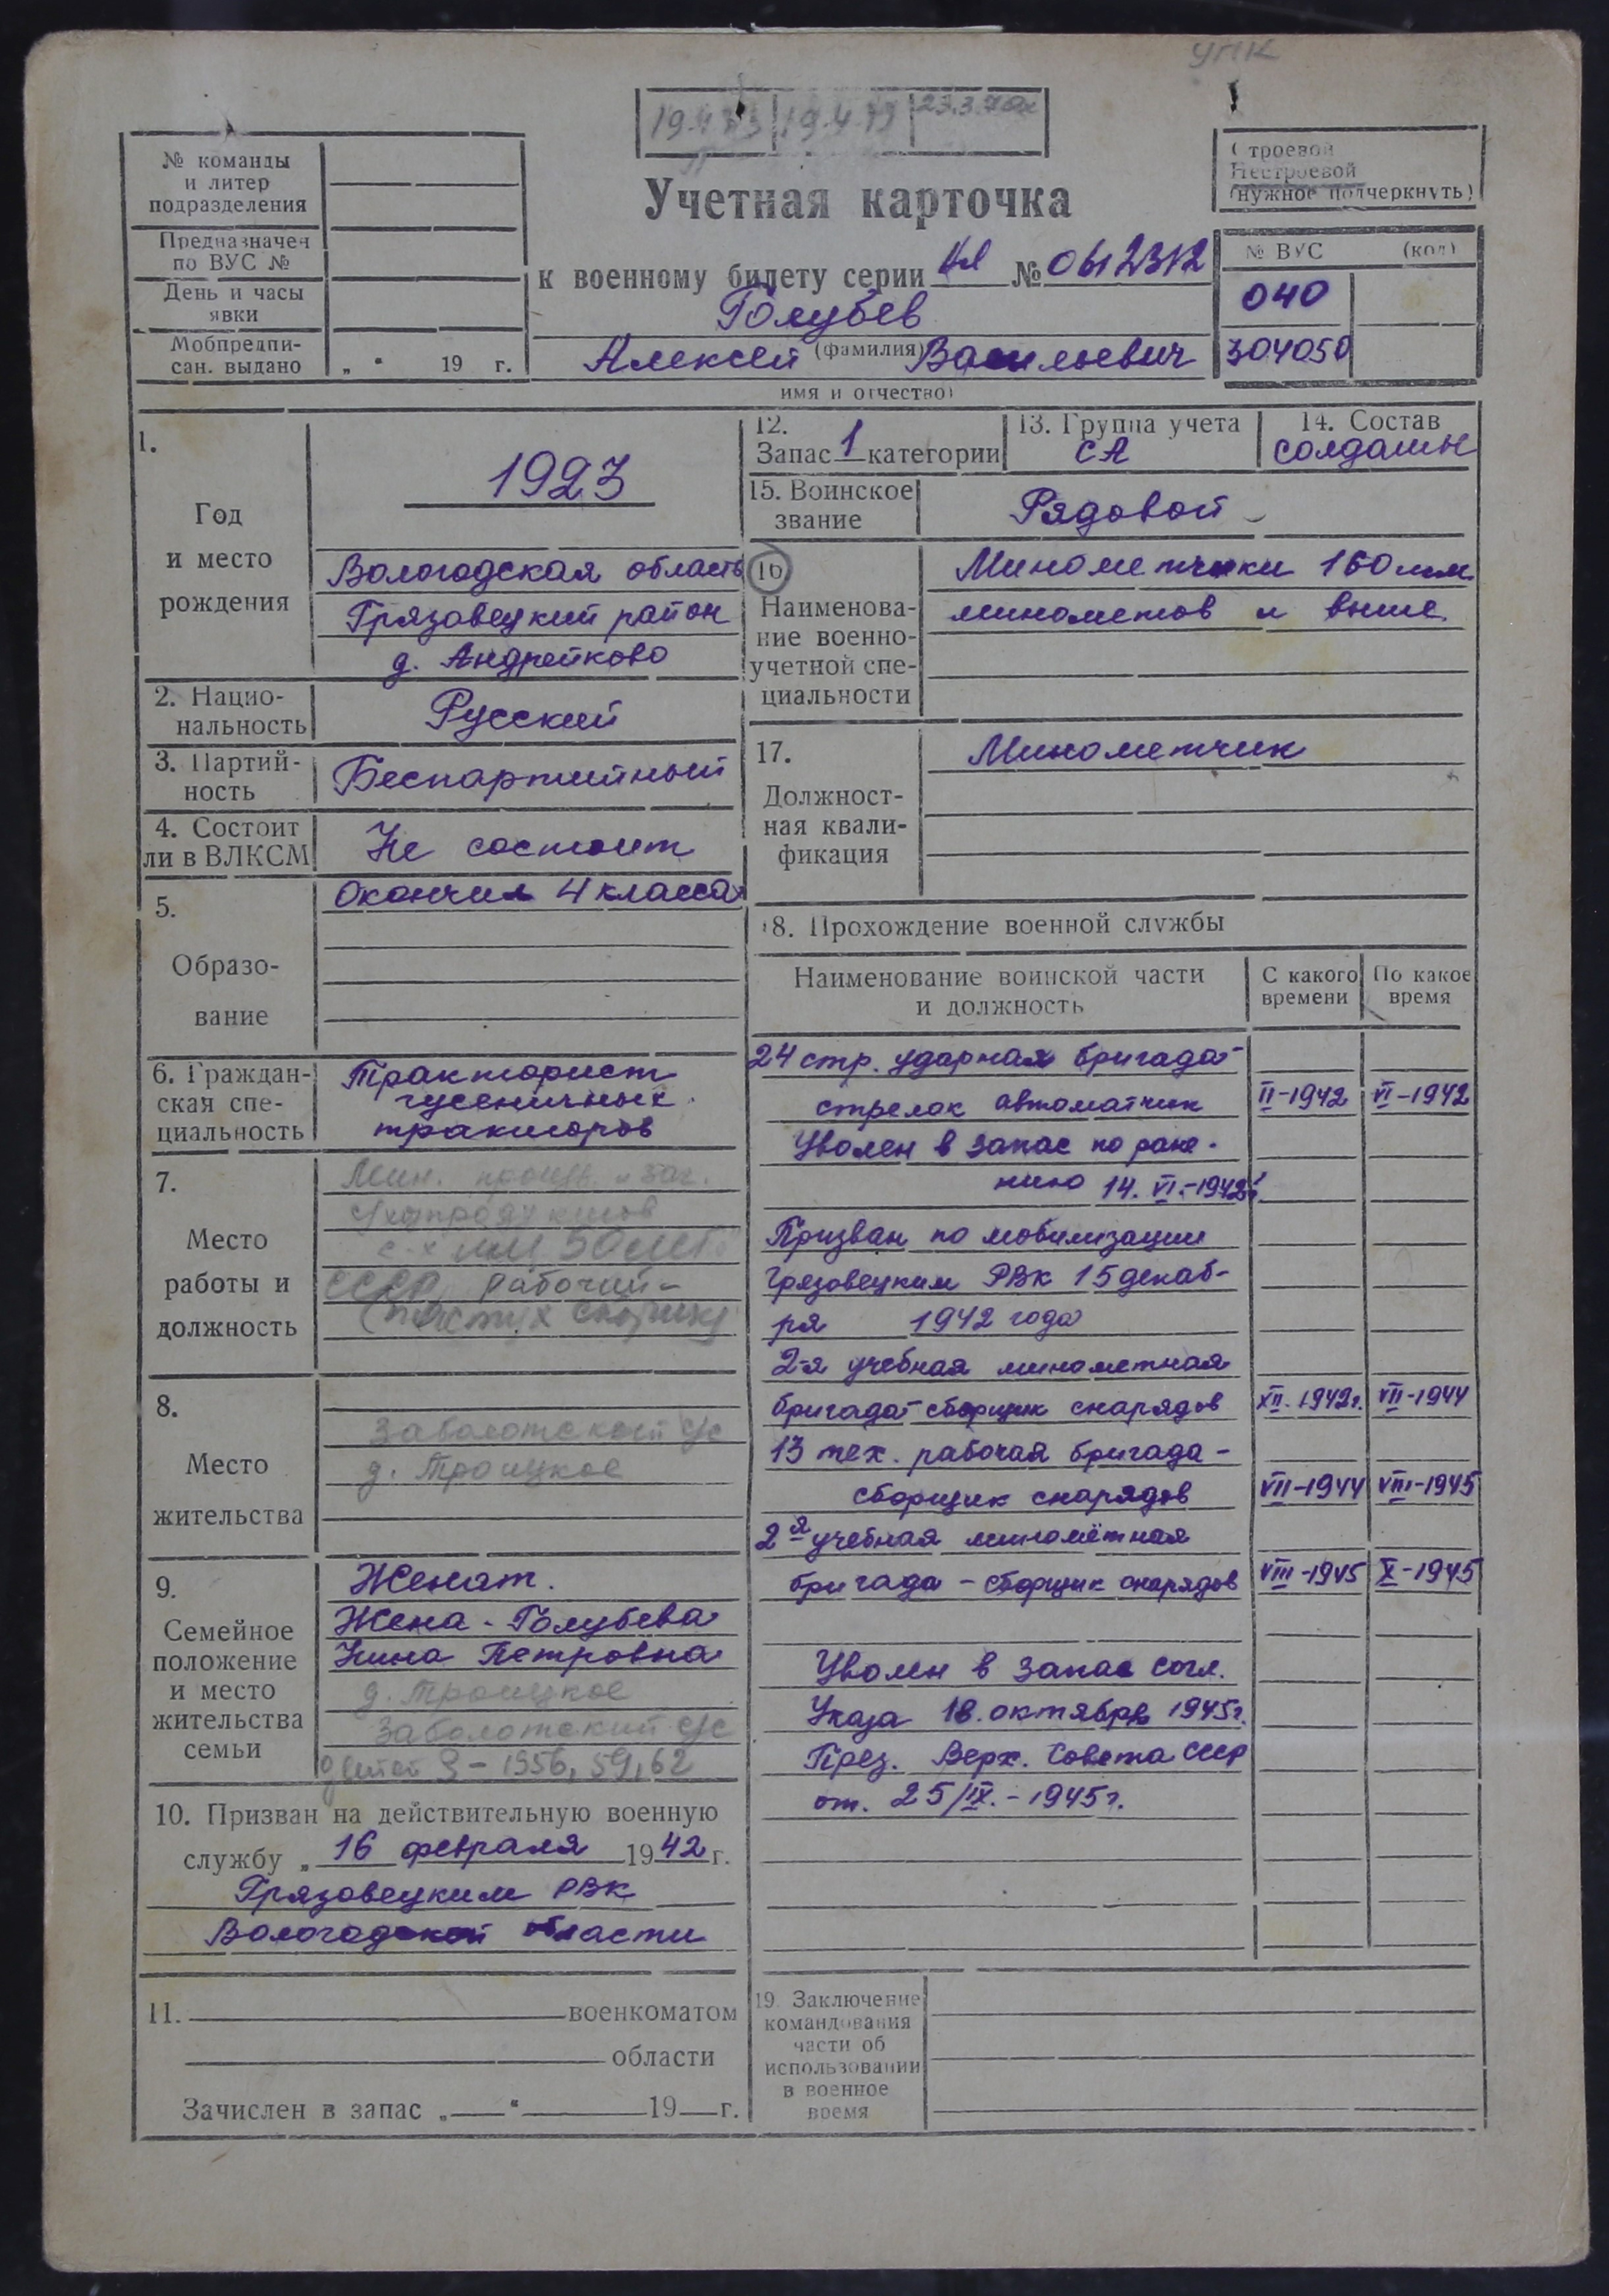 УПК
19.4.79
23.3.70
№ команды
и литер
подразделения
Предназначен
по ВУС №
День и часы
явки
Мобпредпи-
сан. выдано „ “ 19 г.
Учетная карточка
к военному билету серии № 0612312
Голубев
(фамилия)
Алексей Васильевич
имя и отчество)
Строевой
Нестроевой
(нужное подчеркнуть)
№ ВУС (код)
040
304050
1.
Год
и место
рождения
1923
Вологодская область
Грязовецкий район
д. Андрейково
2. Нацио-
нальность
Русский
3. Партий-
ность
Беспартийный
4. Состоит
ли в ВЛКСМ
Не состоит
5.
Образо-
вание
Окончил 4 класса
6. Граждан-
ская спе-
циальность
Тракторист
гусеничных
тракторов
7.
Место
работы и
должность
Мин. произв. и заг.
с/хпродуктов
с-х им. 50 лет
СССР, рабочий-
8.
Место
жительства
Заболотский с/с
д. Троицкое
9.
Семейное
положение
и место
жительства
семьи
Женат.
Жена - Голубева
Нина Петровна
д. Троицкое
Заболотский с/с
детей 3 - 1956, 59, 62
10. Призван на действительную военную
службу „ 16 февраля 1942 г.
Грязовецким РВК
Вологодской области
11. военкоматом
области
Зачислен в запас „ “ 19 г.
12.
Запас 1 категории
13. Группа учета
СА
14. Состав
солдаты
15. Воинское
звание
Рядовой
16
Наименова-
ние военно-
учетной спе-
циальности
Минометчики 160 мм
минометов и выше
17.
Должност-
ная квали-
фикация
Минометчик
18. Прохождение военной службы
Наименование воинской части
и должность
С какого
времени
По какое
время
24 стр. ударная бригада-
стрелок автоматчик II-1942 VI-1942
Уволен в запас по ране-
нию 14.VI.-1942г.
Призван по мобилизации
Грязовецким РВК 15 декаб-
ря 1942 года
2-я учебная минометная
бригада-сборщик снарядов XII.1942г. VII-1944
13 тех. рабочая бригада-
сборщик снарядов VII-1944 VIII-1945
2я учебная миномётная
бригада - сборщик снарядов VIII-1945 X-1945
Уволен в запас согл.
Указа 18. октября 1945г.
През. Верх. Совета СССР
от. 25/IX.-1945г.
19. Заключение
командования
части об
использовании
в военное
время